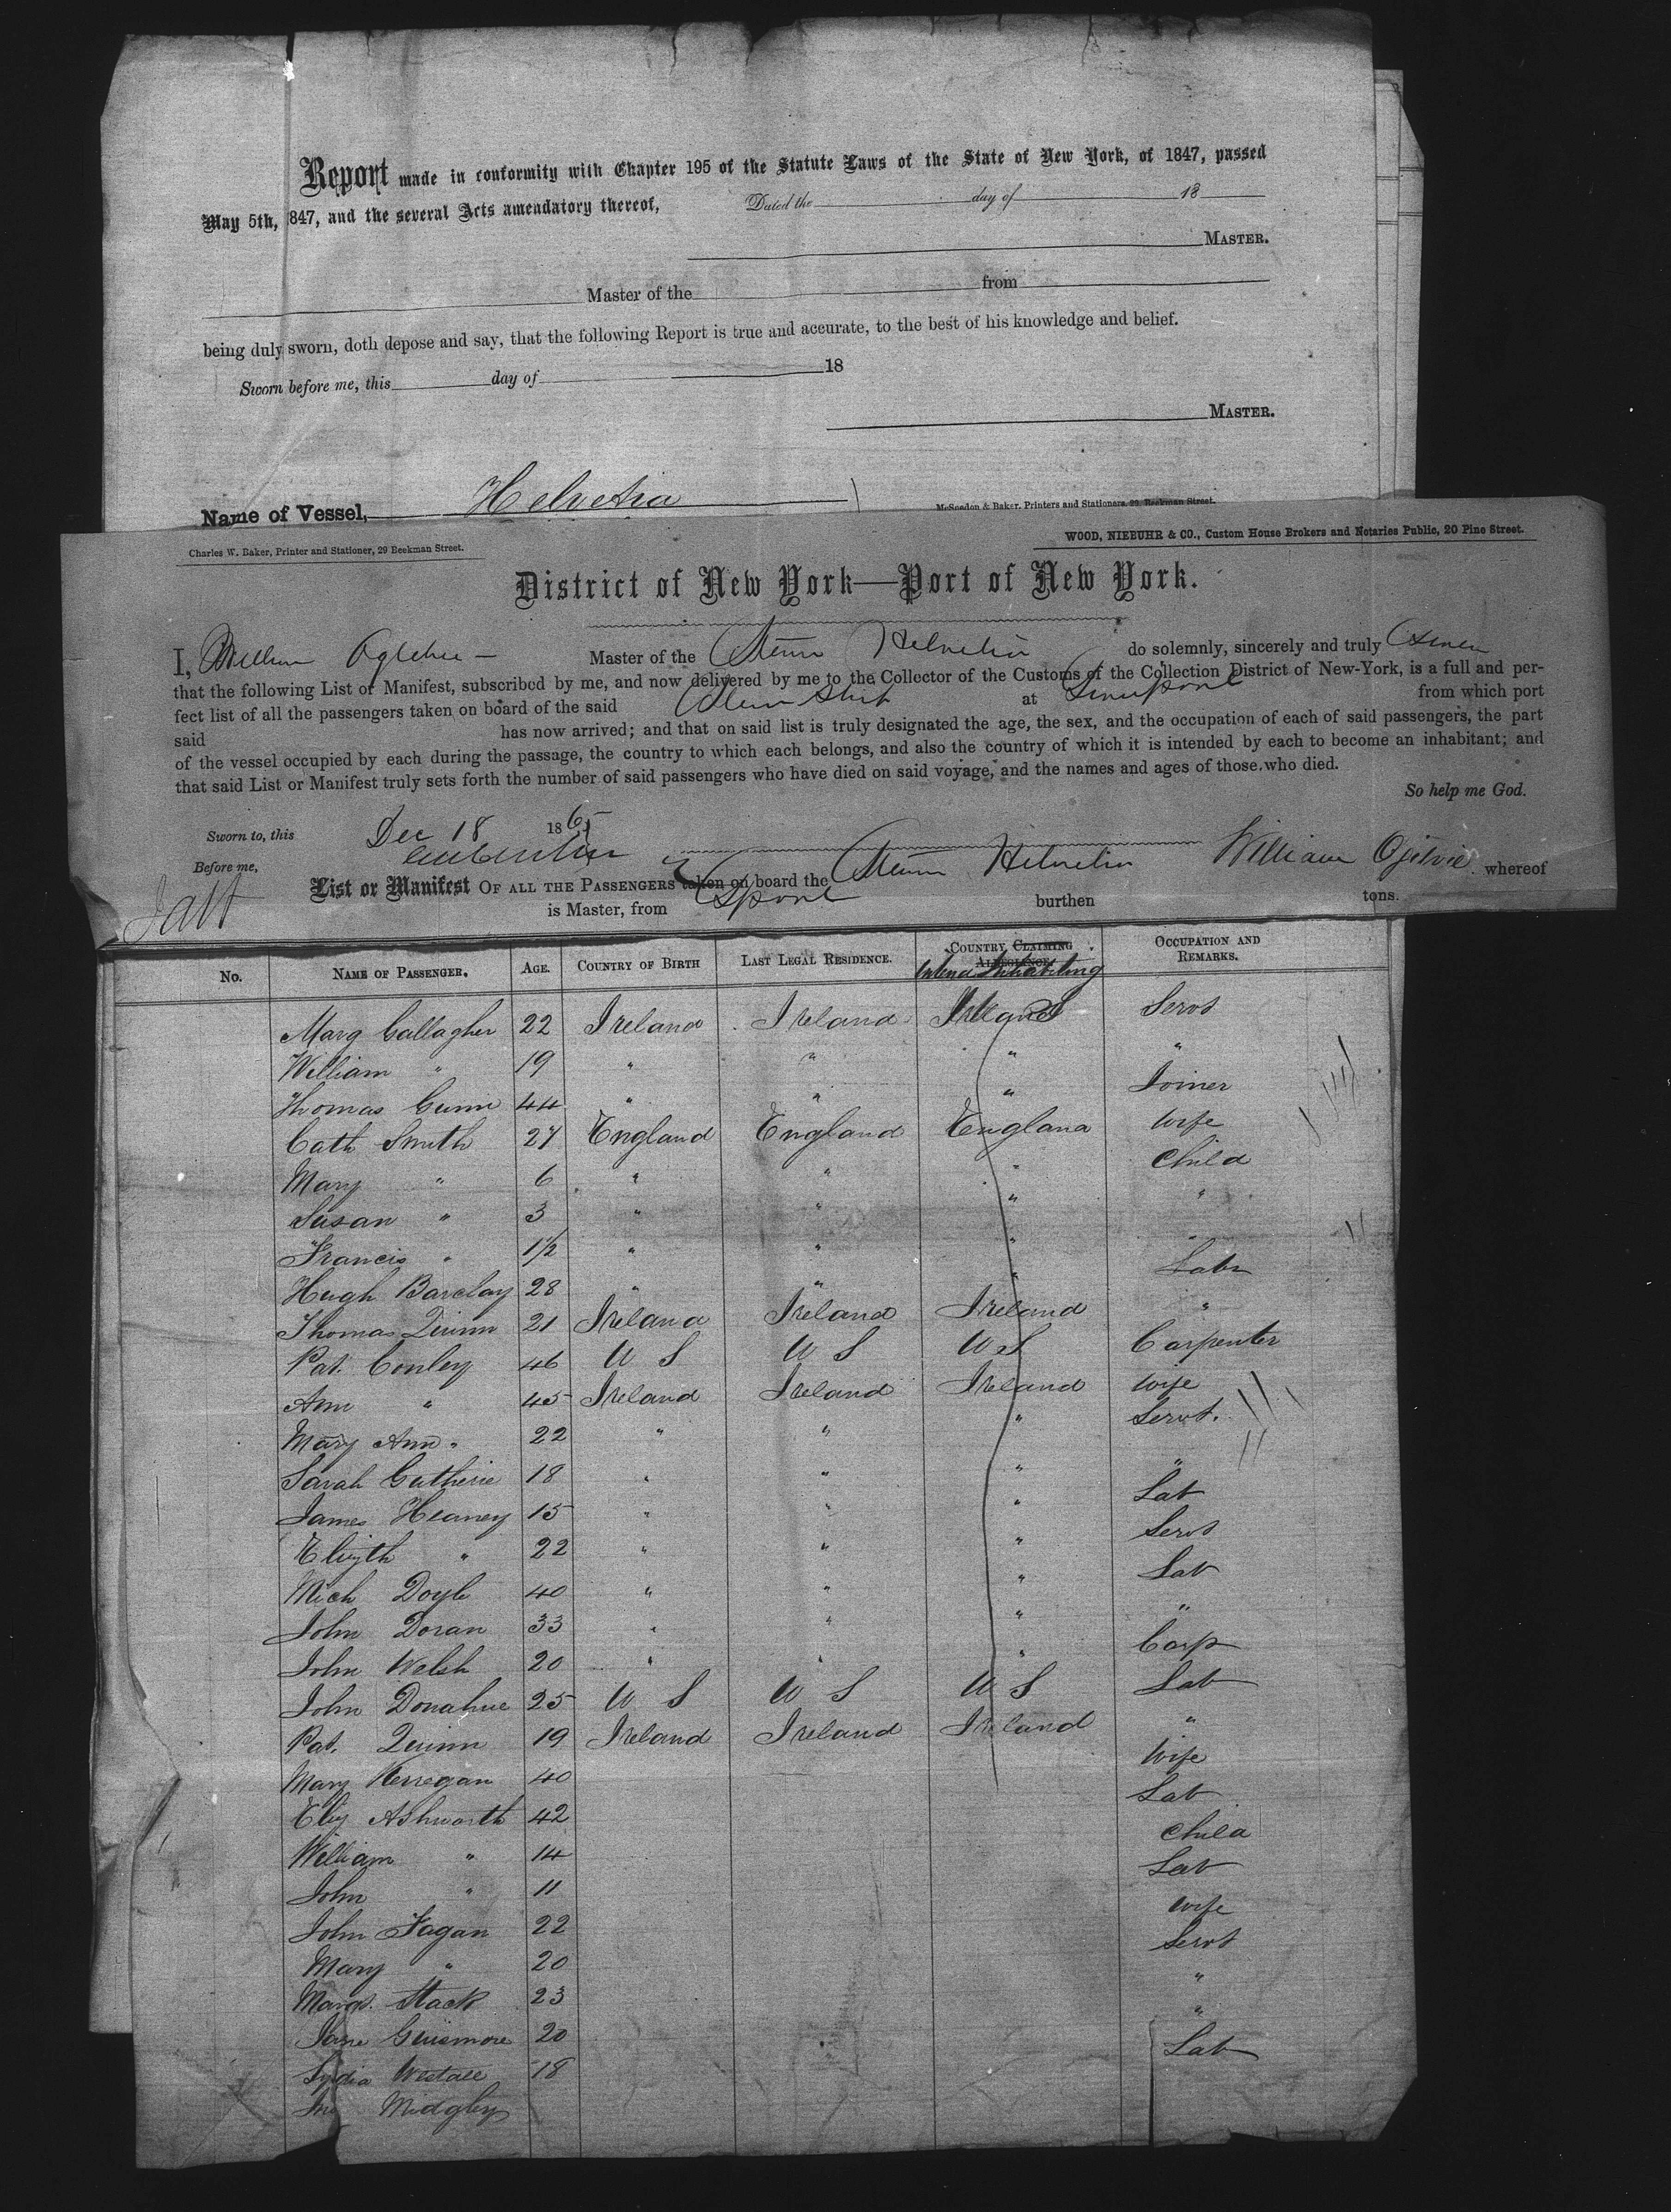 Report made in conformity with Chapter 195 of the Statute Laws of the State of New York, of 1847, passed
May 5th, 847, and the several Acts amendatory thereof, Dated the day of 18
MASTER.
Master of the from
being duly sworn, doth depose and say, that the following Report is true and accurate, to the best of his knowledge and belief.
Sworn before me, this day of 18
MASTER.
Name of Vessel, Helvetia
McSpedon & Baker, Printers and Stationers, 29 Beekman Street.
Charles W. Baker, Printer and Stationer, 29 Beekman Street.
WOOD, NIEBUHR & CO., Custom House Brokers and Notaries Public, 20 Pine Street.
District of New York—Port of New York.
I, William Master of the do solemnly, sincerely and truly
that the following List or Manifest, subscribed by me, and now delivered by me to the Collector of the Customs of the Collection District of New-York, is a full and per-
fect list of all the passengers taken on board of the said at from which port
said has now arrived; and that on said list is truly designated the age, the sex, and the occupation of each of said passengers, the part
of the vessel occupied by each during the passage, the country to which each belongs, and also the country of which it is intended by each to become an inhabitant; and
that said List or Manifest truly sets forth the number of said passengers who have died on said voyage, and the names and ages of those who died.
So help me God.
Sworn to, this Dec 18 1865
Before me,
List or Manifest OF ALL THE PASSENGERS taken on board the William Ogilvie whereof
is Master, from burthen tons.
No. NAME OF PASSENGER. AGE. COUNTRY OF BIRTH LAST LEGAL RESIDENCE. COUNTRY CLAIMING ALLEGIANCE. Intend Inhabiting OCCUPATION AND REMARKS.
Marg Gallagher 22 Ireland Ireland Ireland Servt
William " 19 " " " "
Thomas Gunn 44 " " " Joiner
Cath Smith 27 England England England Wife
Mary " 6 " " " Child
Susan " 3 " " " "
Francis " 1/2 " " " "
Hugh Barclay 28 " " " Labr
Thomas Quinn 21 Ireland Ireland Ireland "
Pat. Conley 46 U S U S U S Carpenter
Ann " 45 Ireland Ireland Ireland Wife
Mary Ann " 22 " " " Servt.
Sarah Gutherie 18 " " " "
James Heaney 15 " " " Lab
Elizth " 22 " " " Servt
Mich Doyle 40 " " " Lab
John Doran 33 " " " "
John Welsh 20 " " " Carp
John Donahue 25 U S U S U S Lab
Pat. Quinn 19 Ireland Ireland Ireland "
Mary Kerregan 40 Wife
Eliz Ashworth 42 Lab
William " 14 Child
John " 11 Lab
John Fagan 22 Wife
Mary " 20 Servt
Margt. Stack 23 "
Jane 20 "
Lydia Westall 18 Lab
Midgley